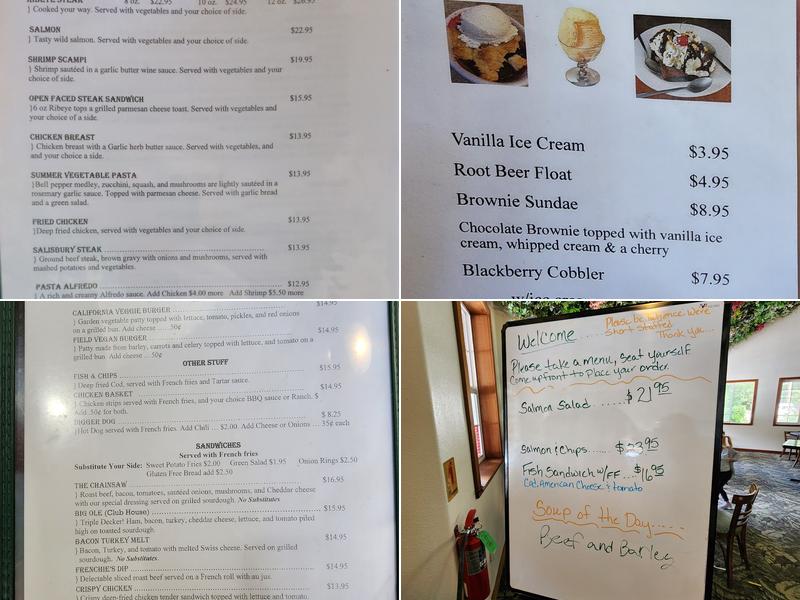 RIBEYE STEAK 8 oz. $22.95 10 oz. $24.95 12 oz. $26.95
} Cooked your way. Served with vegetables and your choice of side.
SALMON $22.95
} Tasty wild salmon. Served with vegetables and your choice of side.
SHRIMP SCAMPI $19.95
} Shrimp sautéed in a garlic butter wine sauce. Served with vegetables and your
choice of side.
OPEN FACED STEAK SANDWICH $15.95
}6 oz Ribeye tops a grilled parmesan cheese toast. Served with vegetables and
your choice of a side.
CHICKEN BREAST $13.95
} Chicken breast with a Garlic herb butter sauce. Served with vegetables, and
and your choice a side.
SUMMER VEGETABLE PASTA $13.95
}Bell pepper medley, zucchini, squash, and mushrooms are lightly sautéed in a
rosemary garlic sauce. Topped with parmesan cheese. Served with garlic bread
and a green salad.
FRIED CHICKEN $13.95
}Deep fried chicken, served with vegetables and your choice of side.
SALISBURY STEAK $13.95
} Ground beef steak, brown gravy with onions and mushrooms, served with
mashed potatoes and vegetables.
PASTA ALFREDO $12.95
} A rich and creamy Alfredo sauce. Add Chicken $4.00 more Add Shrimp $5.50 more
Vanilla Ice Cream $3.95
Root Beer Float $4.95
Brownie Sundae $8.95
Chocolate Brownie topped with vanilla ice
cream, whipped cream & a cherry
Blackberry Cobbler $7.95
CALIFORNIA VEGGIE BURGER $14.95
} Garden vegetable patty topped with lettuce, tomato, pickles, and red onions
on a grilled bun. Add cheese ... .50¢
FIELD VEGAN BURGER $14.95
} Patty made from barley, carrots and celery topped with lettuce, and tomato on a
grilled bun. Add cheese ... 50¢
OTHER STUFF
FISH & CHIPS $15.95
} Deep fried Cod, served with French fries and Tartar sauce.
CHICKEN BASKET $14.95
} Chicken strips served with French fries, and your choice BBQ sauce or Ranch. $
Add .50¢ for both.
DIGGER DOG $ 8.25
}Hot Dog served with French fries. Add Chili ... $2.00 Add Cheese or Onions ... 35¢ each
SANDWICHES
Served with French fries
Substitute Your Side: Sweet Potato Fries $2.00 Green Salad $1.95 Onion Rings $2.50
Gluten Free Bread add $2.50
THE CHAINSAW $16.95
} Roast beef, bacon, tomatoes, sautéed onions, mushrooms, and Cheddar cheese
with our special dressing served on grilled sourdough. No Substitutes
BIG OLE (Club House) $15.95
} Triple Decker! Ham, bacon, turkey, cheddar cheese, lettuce, and tomato piled
high on toasted sourdough.
BACON TURKEY MELT $14.95
} Bacon, Turkey, and tomato with melted Swiss cheese. Served on grilled
sourdough. No Substitutes.
FRENCHIE'S DIP $14.95
} Delectable sliced roast beef served on a French roll with au jus.
CRISPY CHICKEN $13.95
} Crispy deep-fried chicken tender sandwich topped with lettuce and tomato.
Welcome
Please be patience we're
Short Staffed
Thank you...
Please take a menu, Seat yourself
Come up front to Place your order.
Salmon Salad ...... $21.95
Salmon & Chips ...... $23.95
Fish Sandwich w/FF ... $16.95
Cod, American Cheese & tomato
Soup of the Day.....
Beef and Barley